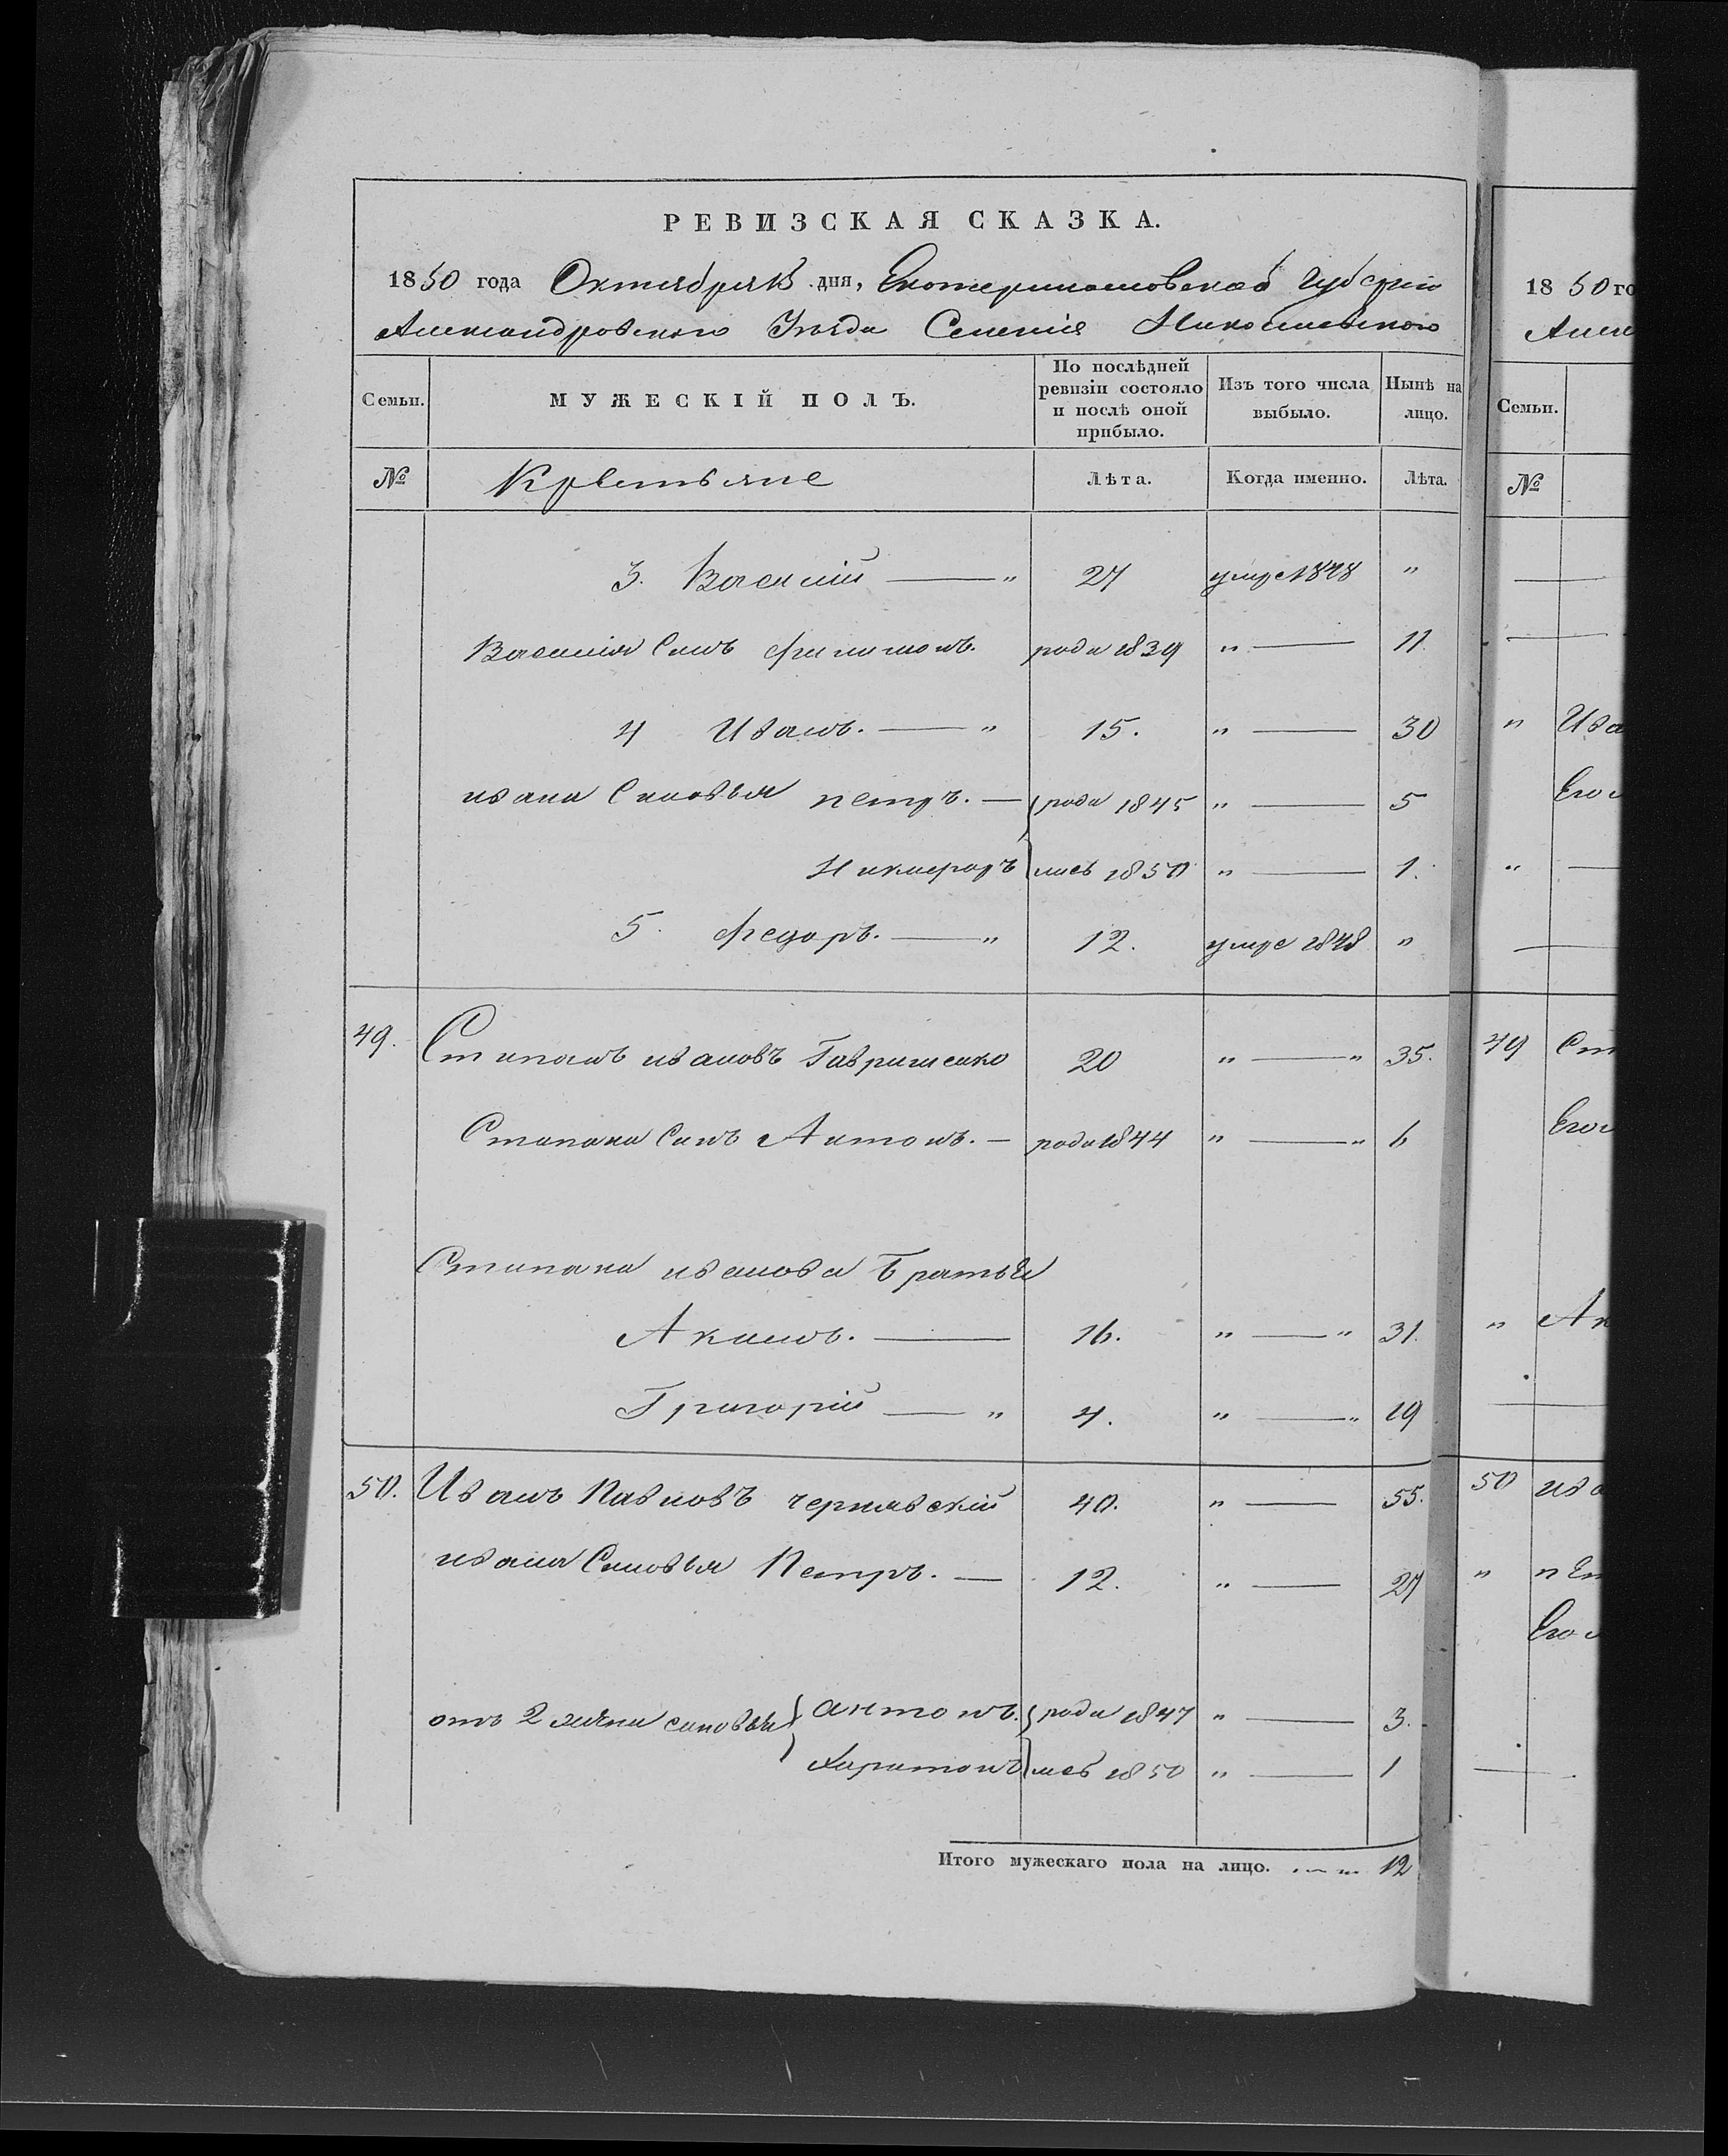 РЕВИЗСКАЯ СКАЗКА.
1850 года Октября 15 дня, Екатеринославской Губерніи
Александровского Уезда Селенія Николаевского
Семьи. МУЖЕСКІЙ ПОЛЪ. По послѣдней ревизіи состояло и послѣ оной прибыло. Изъ того числа выбыло. Нынѣ на лицо.
№ Крестьяне Лѣта. Когда именно. Лѣта.
3. Василий — " 27 умре 1848 "
Василия Сынъ Филимонъ. роди 1839 " — 11.
4 Иванъ. — " 15. " — 30
ивана Сыновья петръ. — роди 1845 " — 5
Никифоръ лись 1850 " — 1.
5. Федоръ. — " 12. умре 1848 "
49. Степанъ ивановъ Гавришенко 20 " — " 35.
Степана Сынъ Антонъ. — роди 1844 " — " 6
Степана иванова Братья
Акимъ. — 16. " — " 31.
Григорій — " 4. " — " 19
50. Иванъ Павловъ чернявскій 40. " — 55.
ивана Сыновья Петръ. — 12. " — 27
отъ 2 жены сыновья антонъ. роди 1847 " — 3.
Харитонъ лись 1850 " — 1
Итого мужескаго пола на лицо. 12
18 50 го
Алек
Семьи.
№
" Ива
Его
"
49 Сте
Его
" Ак
50 ива
" пет
Его